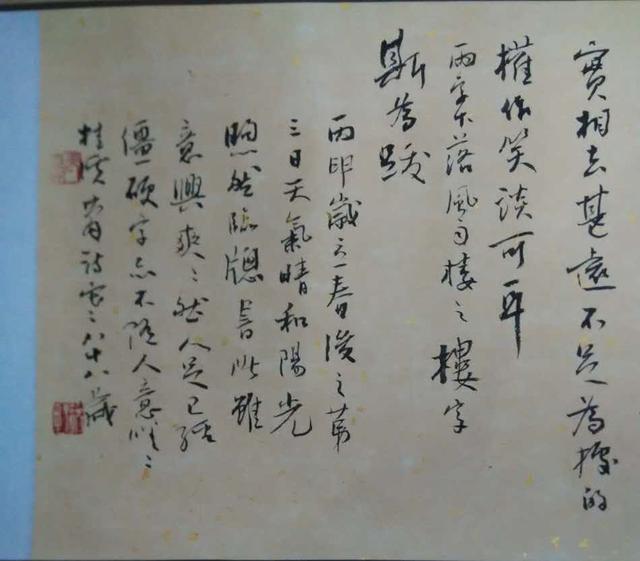 實相去甚遠不足為據的
權作笑談可耳
兩字下落風月樓之樓字
斯為跋
丙申歲立春後之第
三日天氣晴和陽光
煦然臨窗書此雖
意興爽爽然人已
僵硬字亦不隨人意
時年八十八歲